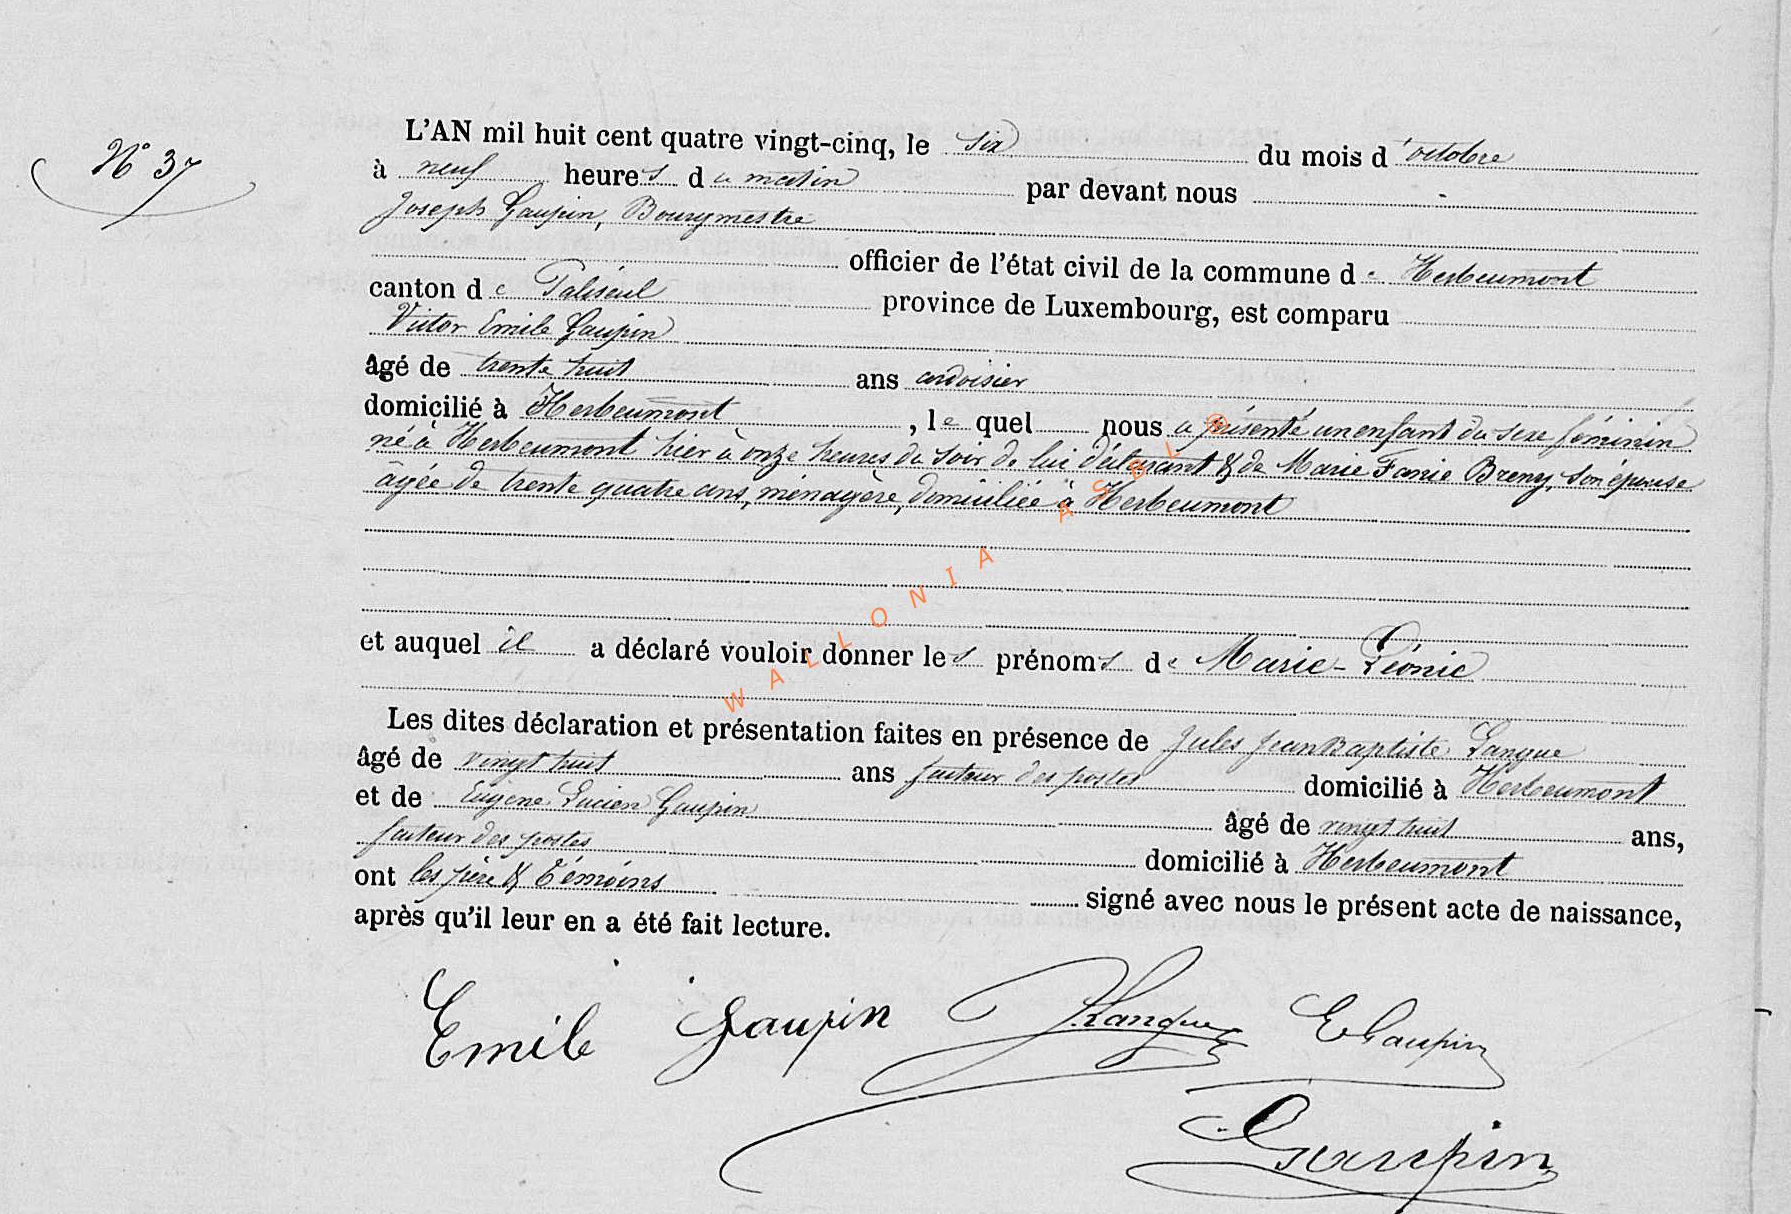 N° 37
L'AN mil huit cent quatre vingt-cinq, le six du mois d'octobre
à neuf heures du matin par devant nous
Joseph Gaupin, Bourgmestre
officier de l'état civil de la commune de Herbeumont
canton de Paliseul province de Luxembourg, est comparu
Victor Emile Gaupin
âgé de trente huit ans ardoisier
domicilié à Herbeumont, lequel nous a présenté un enfant du sexe féminin
né à Herbeumont hier à onze heures du soir de lui déclarant & de Marie Fanie Breny, son épouse
âgée de trente quatre ans, ménagère, domiciliée à Herbeumont
et auquel il a déclaré vouloir donner les prénoms de Marie-Léonie
Les dites déclaration et présentation faites en présence de Jules Jean Baptiste Langue
âgé de vingt huit ans facteur des postes domicilié à Herbeumont
et de Eugène Lucien Gaupin âgé de vingt huit ans,
facteur des postes domicilié à Herbeumont
ont les père & témoins signé avec nous le présent acte de naissance,
après qu'il leur en a été fait lecture.
Emile Gaupin J. Langue E Gaupin
Gaupin
WALLONIA ASBL ®